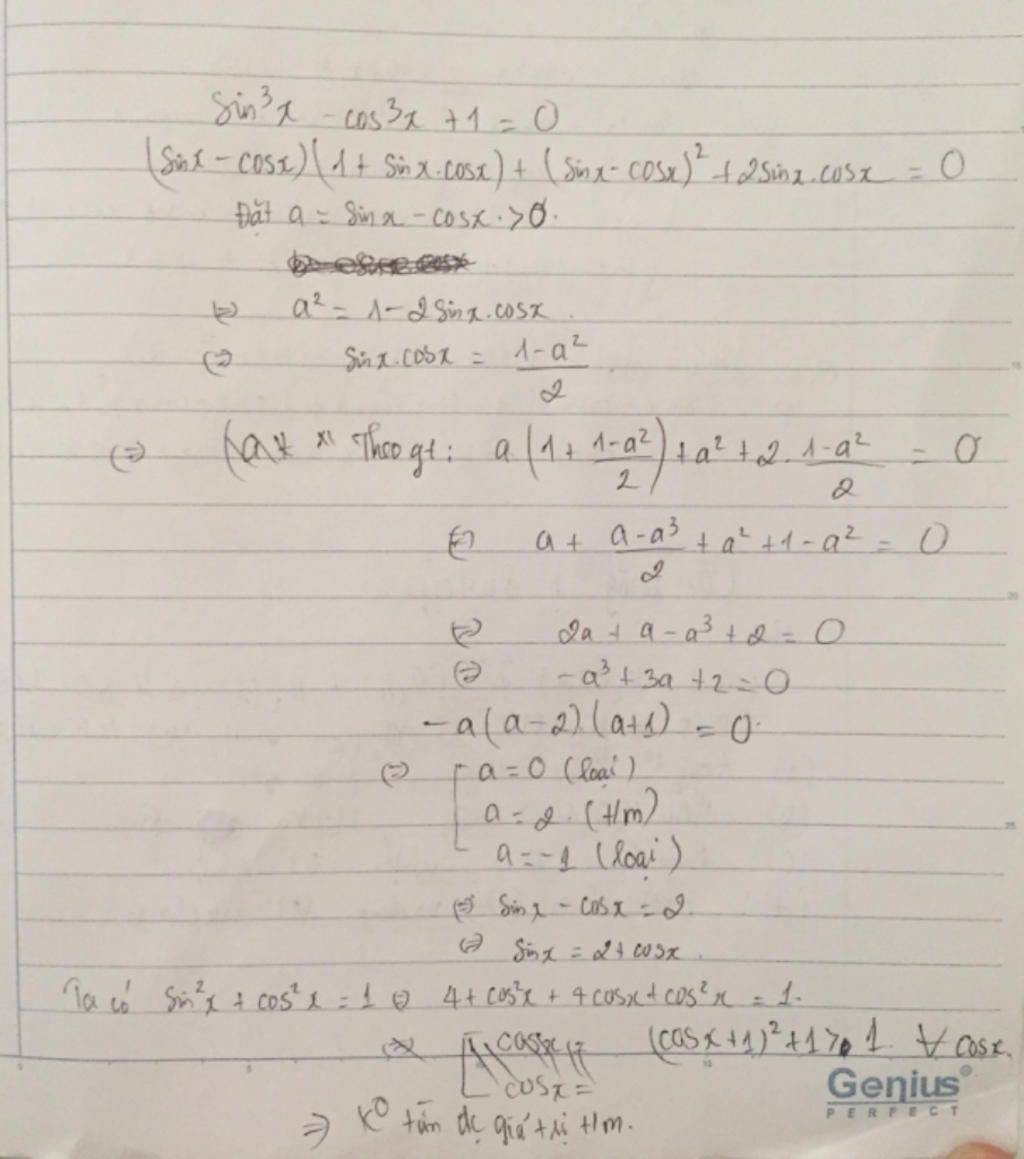 sin³x - cos³x + 1 = 0
(sinx - cosx)(1 + sinx.cosx) + (sinx - cosx)² + 2sinx.cosx = 0
Đặt a = sinx - cosx. > 0.
⇔ a² = 1 - 2sinx.cosx.
⇔ sinx.cosx = (1-a²)/2
⇔ Theo gt: a(1 + (1-a²)/2) + a² + 2.(1-a²)/2 = 0
⇔ a + (a-a³)/2 + a² + 1 - a² = 0
⇔ 2a + a - a³ + 2 = 0
⇔ -a³ + 3a + 2 = 0
-a(a-2).(a+1) = 0.
⇔ [ a = 0 (loại)
a = 2. (t/m)
a = -1 (loại)
⇔ sinx - cosx = 2.
⇔ sinx = 2 + cosx.
Ta có sin²x + cos²x = 1 ⇔ 4 + cos²x + 4cosx + cos²x = 1.
(cosx+1)² + 1 ≥ 1. ∀ cosx.
cosx =
⇒ K° tồn đc giá trị t/m.
Genius®
PERFECT